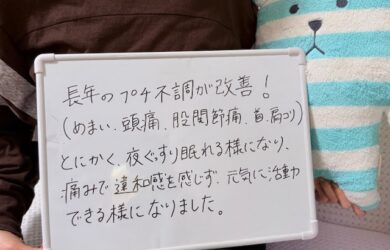 長年のプチ不調が改善！
(めまい、頭痛、股関節痛、首、肩コリ)
とにかく、夜ぐっすり眠れる様になり、
痛みで違和感を感じず、元気に活動
できる様になりました。